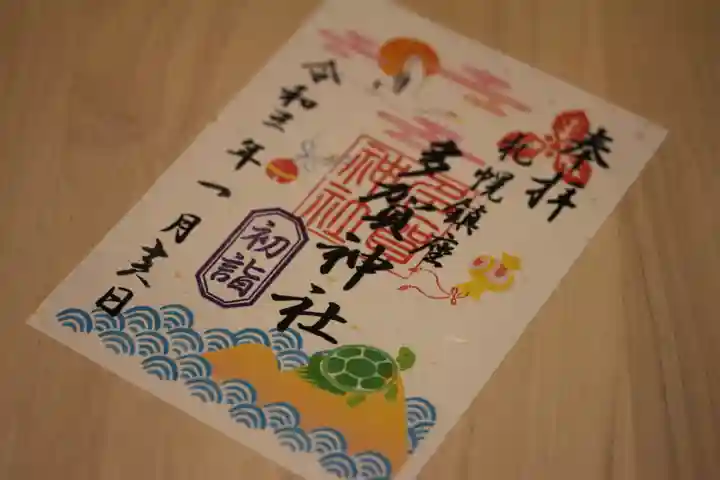 奉拝
札幌鎮座
多賀神社
多賀神社
初詣
令和三年一月吉日